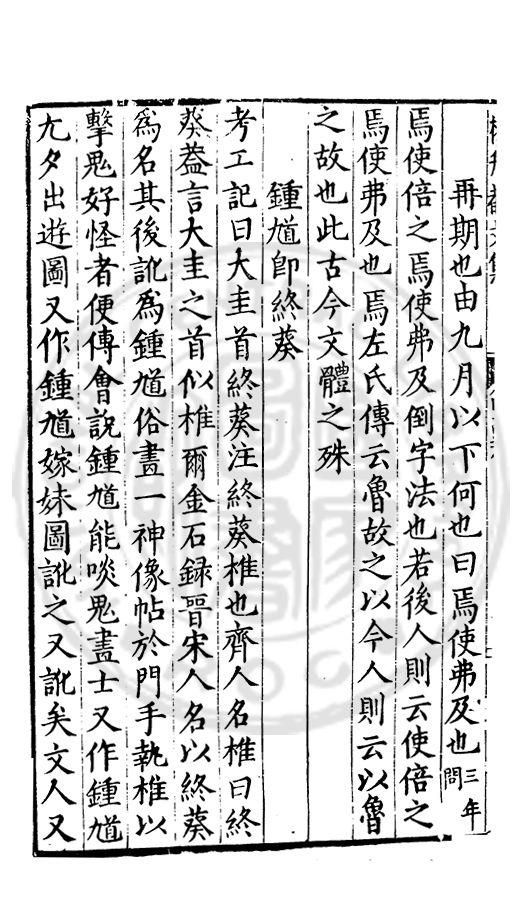 再期也由九月以下何也曰焉使弗及也三年問
焉使倍之焉使弗及倒字法也若後人則云使倍之
焉使弗及也焉左氏傳云魯故之以今人則云以魯
之故也此古今文體之殊
鍾馗卽終葵
考工記曰大圭首終葵注終葵椎也齊人名椎曰終
葵葢言大圭之首似椎爾金石録晉宋人名以終葵
爲名其後訛爲鍾馗俗畫一神像帖於門手執椎以
擊鬼好怪者便傳會說鍾馗能啖鬼畫士又作鍾馗
元夕出遊圖又作鍾馗嫁妹圖訛之又訛矣文人又